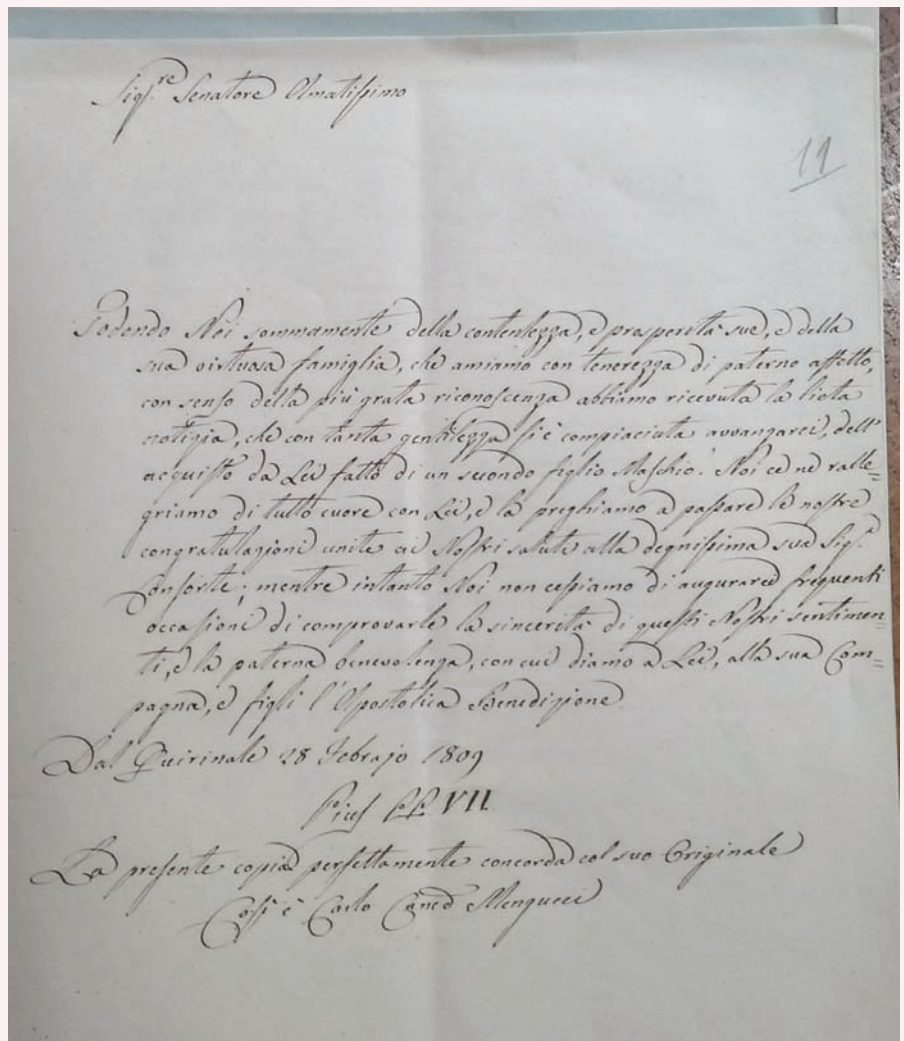 Sig.re Senatore Amatissimo
11
Godendo Noi sommamente della contentezza, e prosperità sue, e della
sua virtuosa famiglia, che amiamo con tenerezza di paterno affetto,
con senso della più grata riconoscenza abbiamo ricevuta la lieta
notizia, che con tanta gentilezza si è compiaciuta avvanzarci, dell'
acquisto da Lei fatto di un secondo figlio Maschio. Noi ce ne ralle=
griamo di tutto cuore con Lei, e la preghiamo a passare le nostre
congratulazioni unite ai Nostri saluti alla degnissima sua Sig.a
Consorte; mentre intanto Noi non cessiamo di augurarci frequenti
occasioni di comprovarle la sincerità di questi Nostri sentimen=
ti, e la paterna benevolenza, con cui diamo a Lei, alla sua Com=
pagna, e figli l'Apostolica Benedizione
Dal Quirinale 28 Febrajo 1809
Pius PP. VII.
La presente copia perfettamente concorda col suo Originale
Così è Carlo Cancd Mengucci